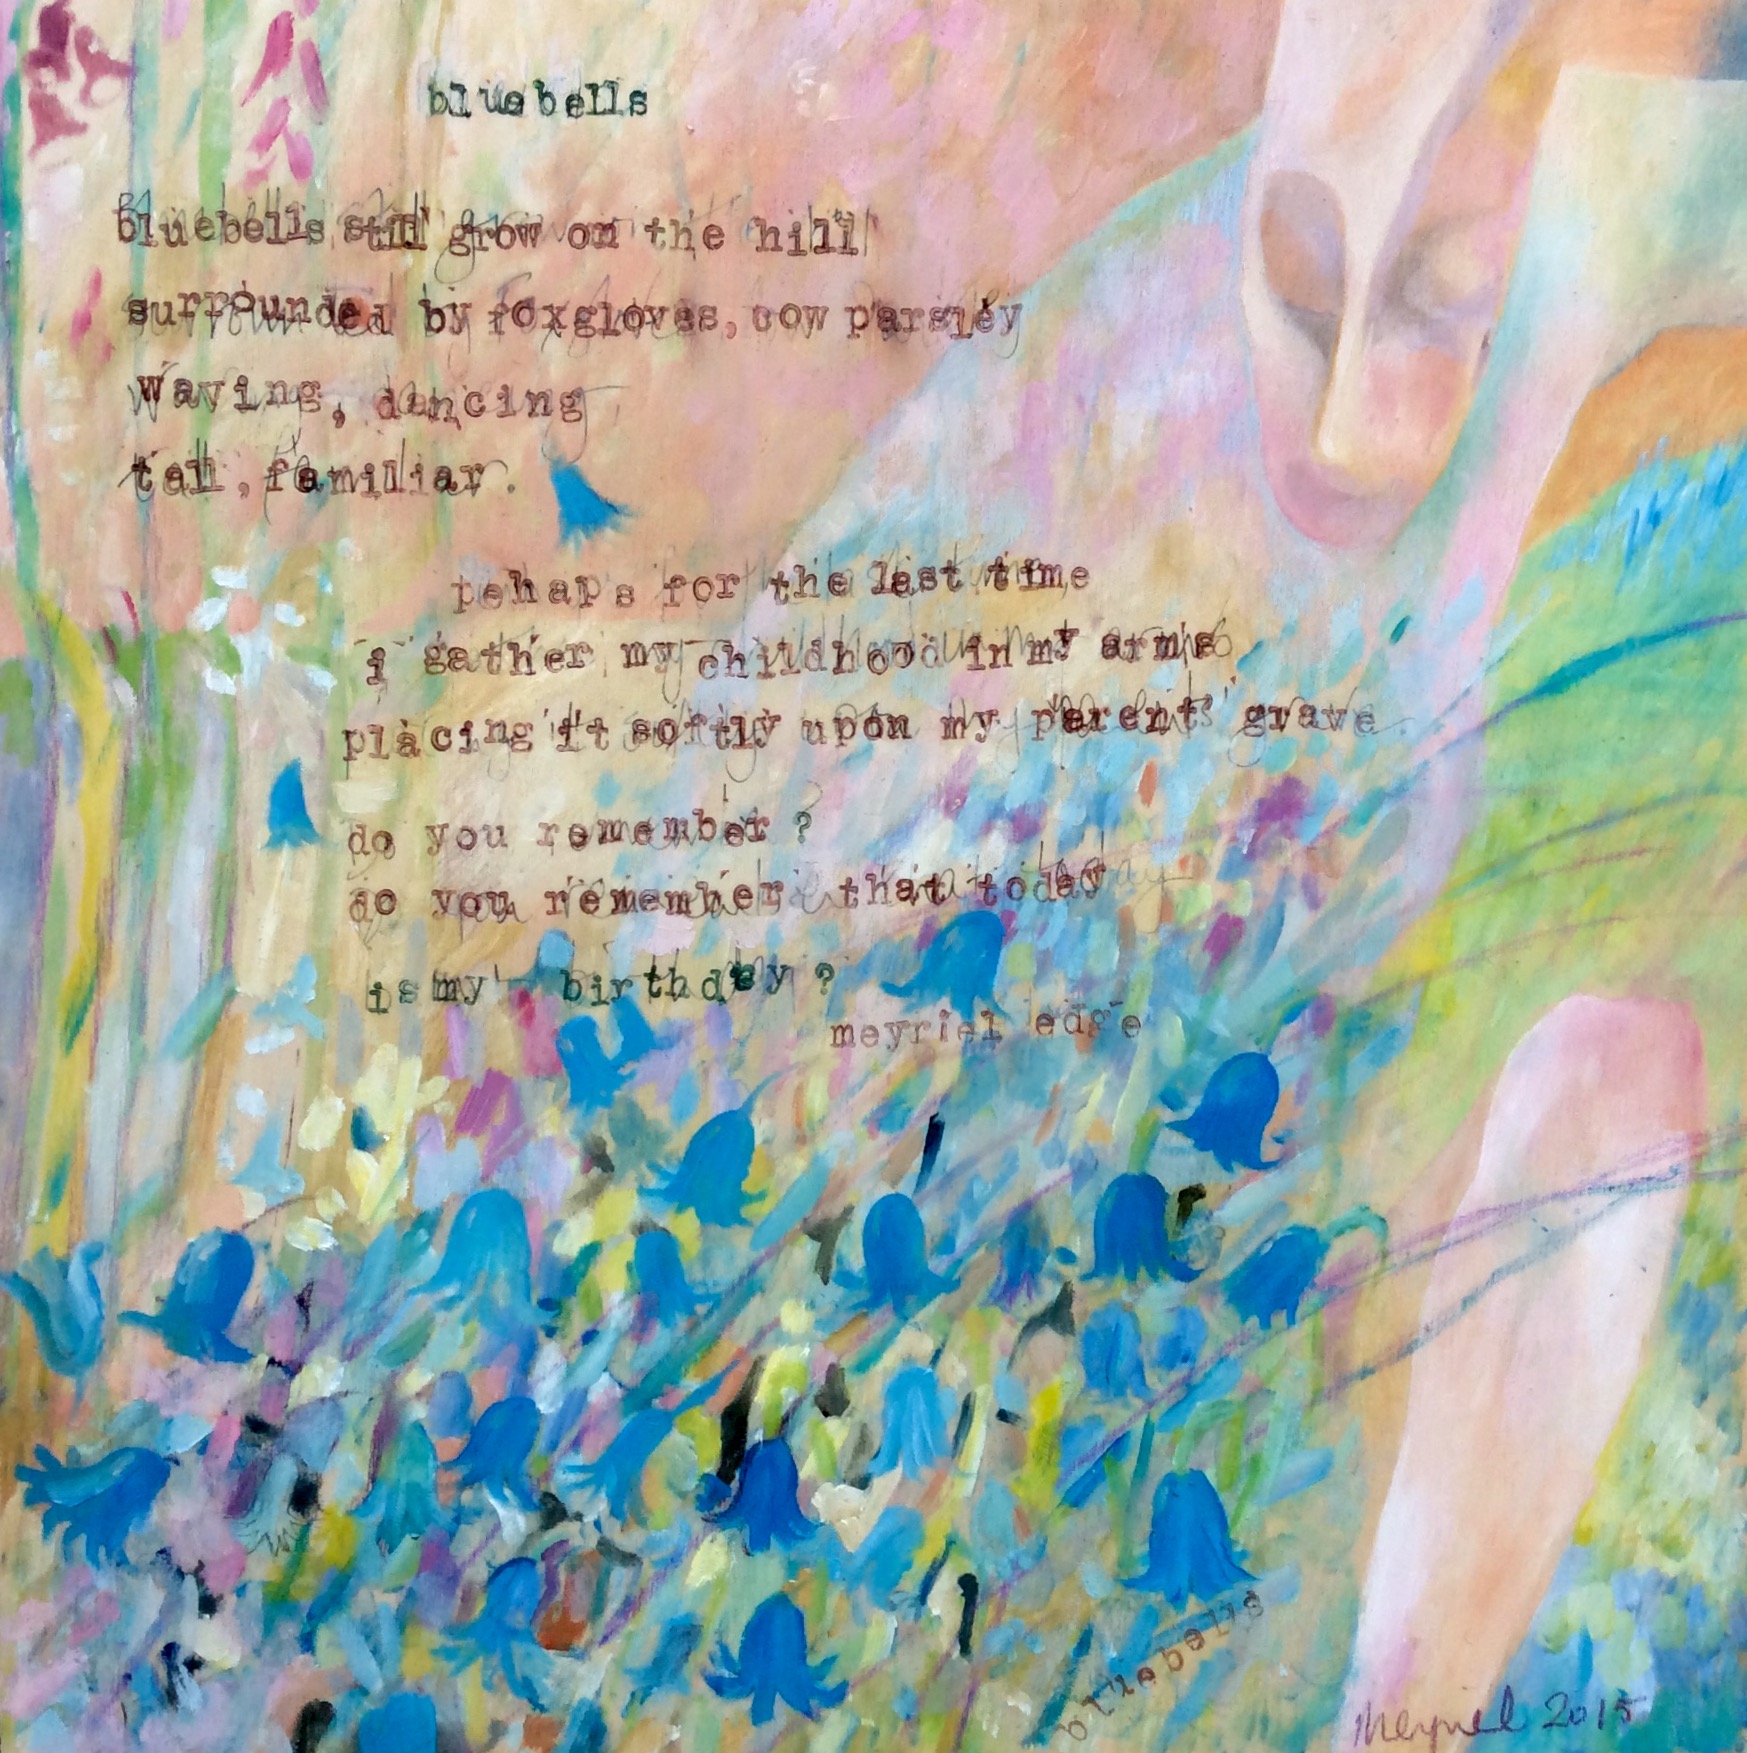 bluebells
bluebells still grow on the hill
surrounded by foxgloves, cow parsley
waving, dancing
tall, familiar.
pehaps for the last time
i gather my childhood in my arms
placing it softly upon my parents' grave.
do you remember?
do you remember that today
is my birthday?
meyriel edge
bluebells
Meyriel 2015